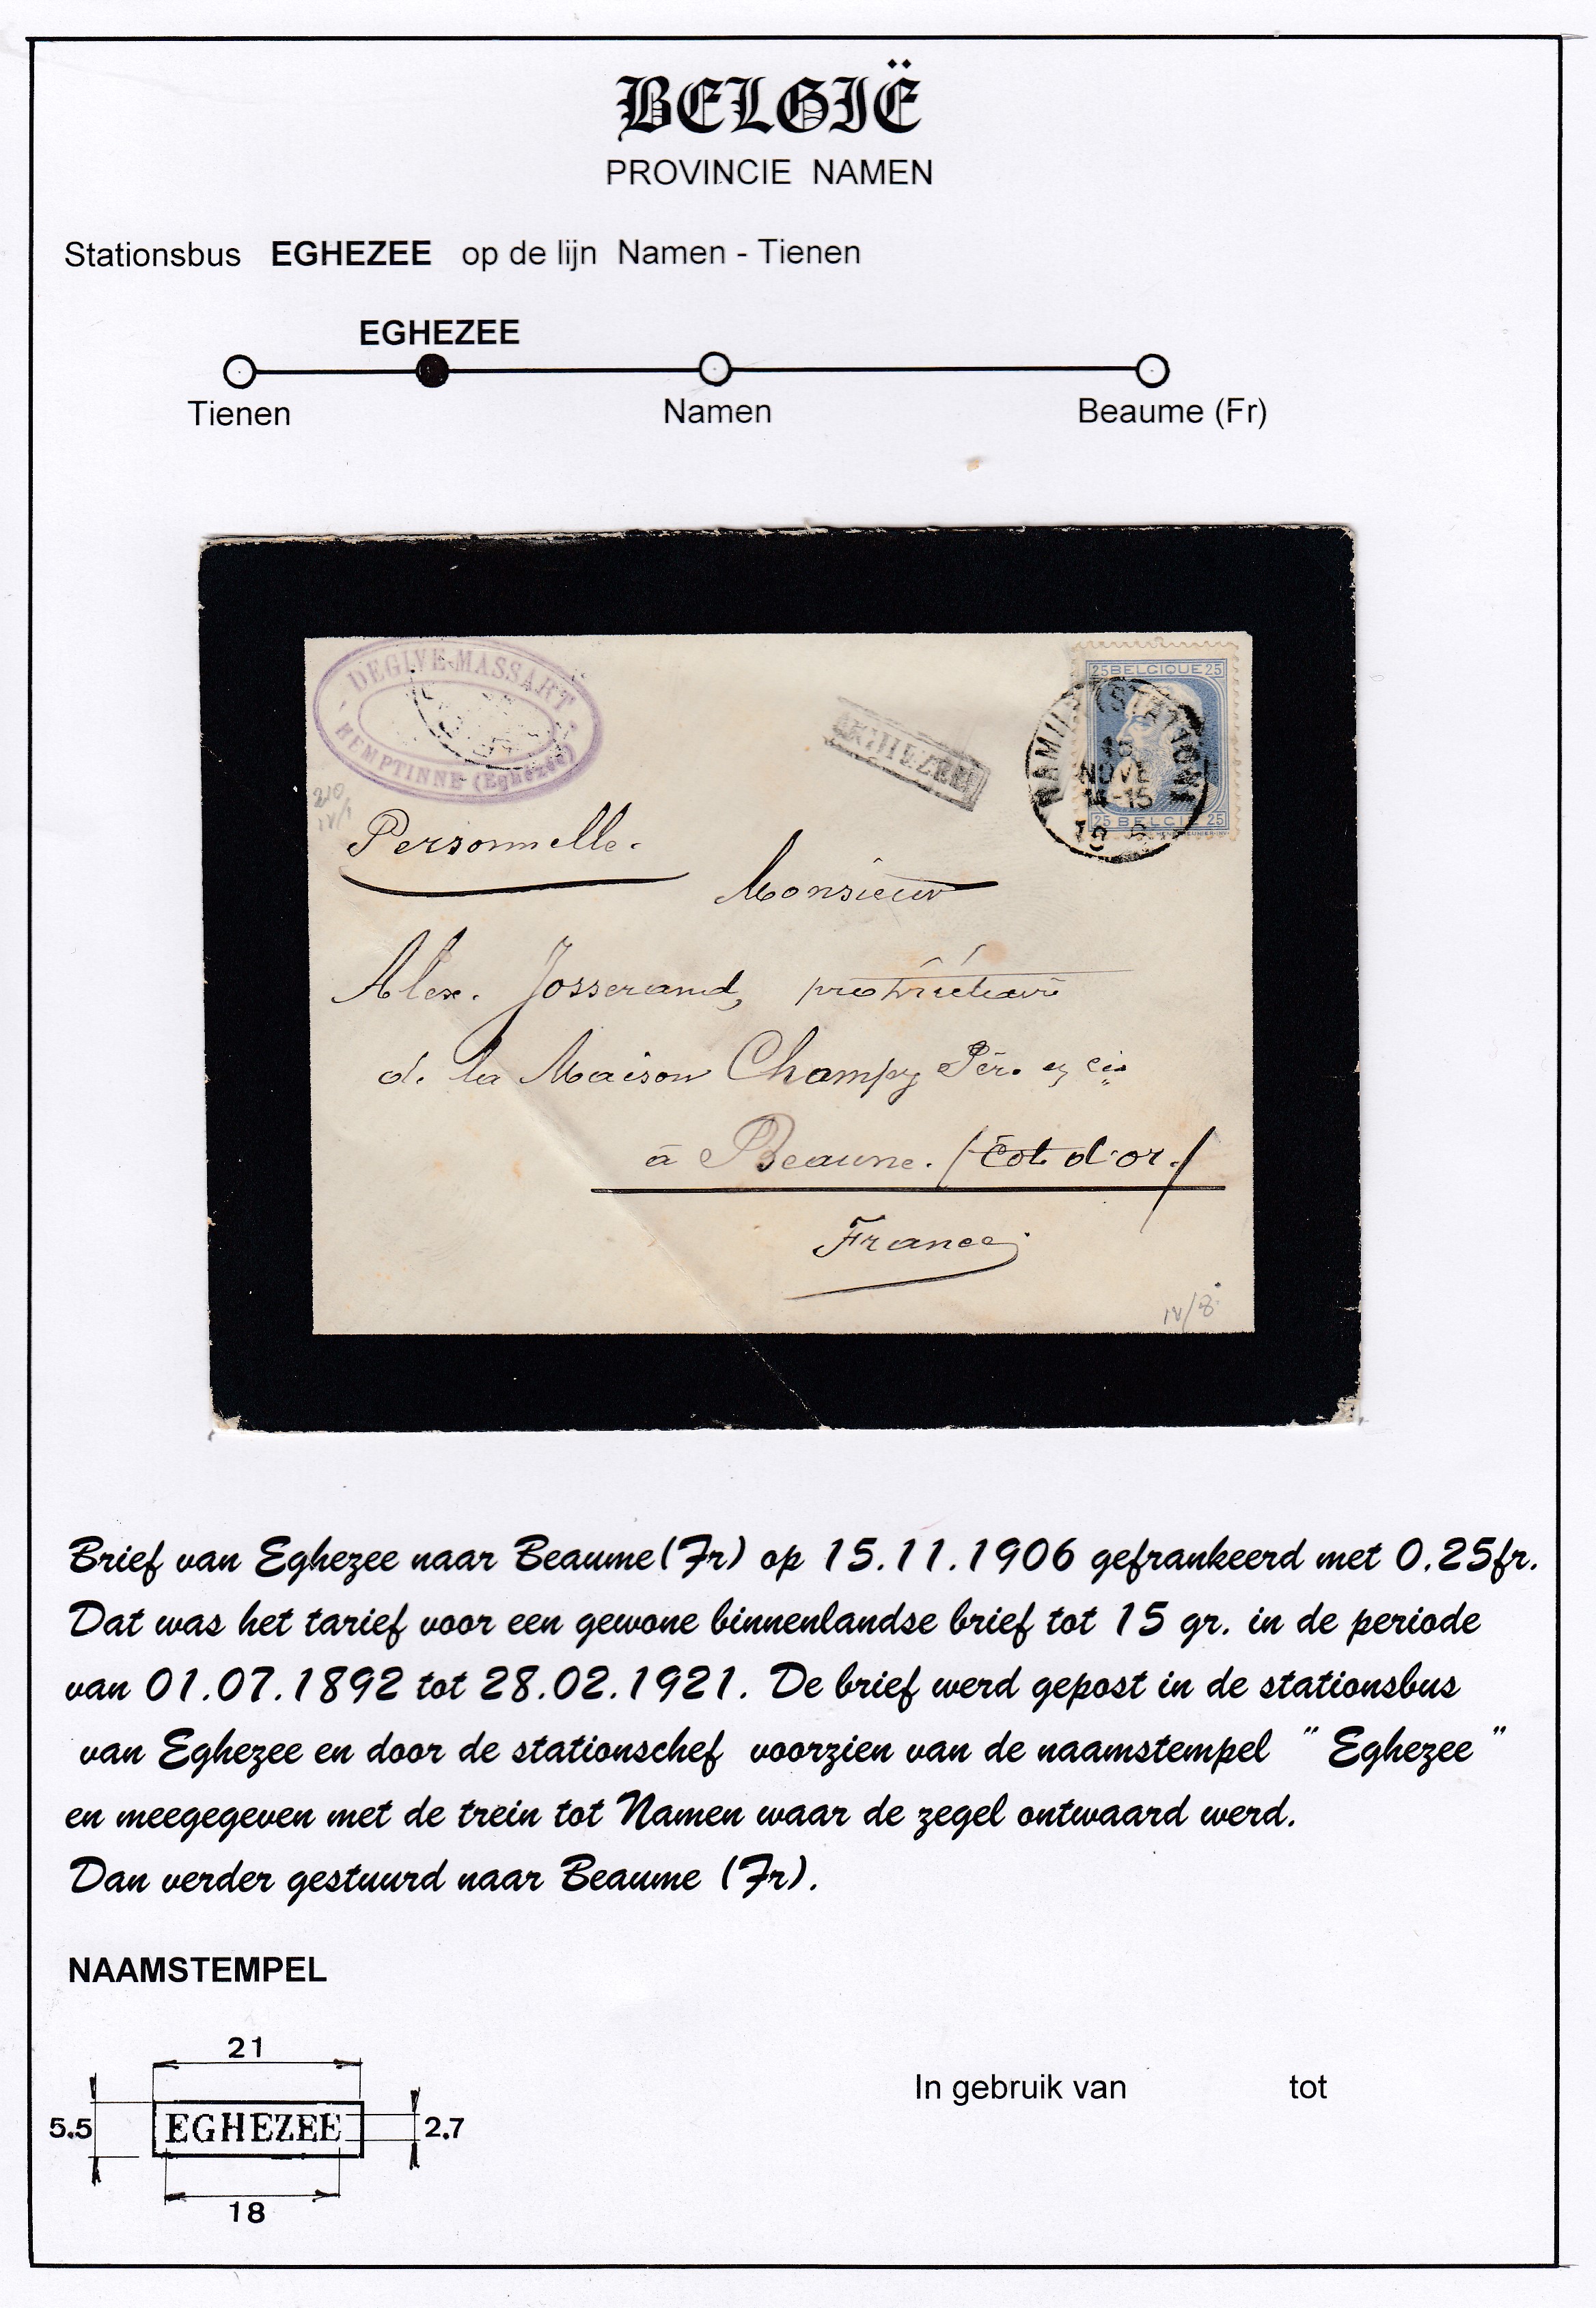 BELGIË
PROVINCIE NAMEN
Stationsbus EGHEZEE op de lijn Namen - Tienen
EGHEZEE
Tienen Namen Beaume (Fr)
DEGIVE-MASSART
HEMPTINNE (Eghezée)
EGHEZEE
25 BELGIQUE 25
NAMUR (STATION)
15
NOVE
14-15
19 6
25 BELGIE 25
210
IV/1
Personnelle.
Monsieur
Alex. Josserand, propriétaire
de la Maison Champy Père & Cie
à Beaune. (Côte d'or.)
France
IV/8
Brief van Eghezee naar Beaume(Fr) op 15.11.1906 gefrankeerd met 0.25fr.
Dat was het tarief voor een gewone binnenlandse brief tot 15 gr. in de periode
van 01.07.1892 tot 28.02.1921. De brief werd gepost in de stationsbus
van Eghezee en door de stationschef voorzien van de naamstempel " Eghezee "
en meegegeven met de trein tot Namen waar de zegel ontwaard werd.
Dan verder gestuurd naar Beaume (Fr).
NAAMSTEMPEL
21
5.5 EGHEZEE 2.7
18
In gebruik van tot